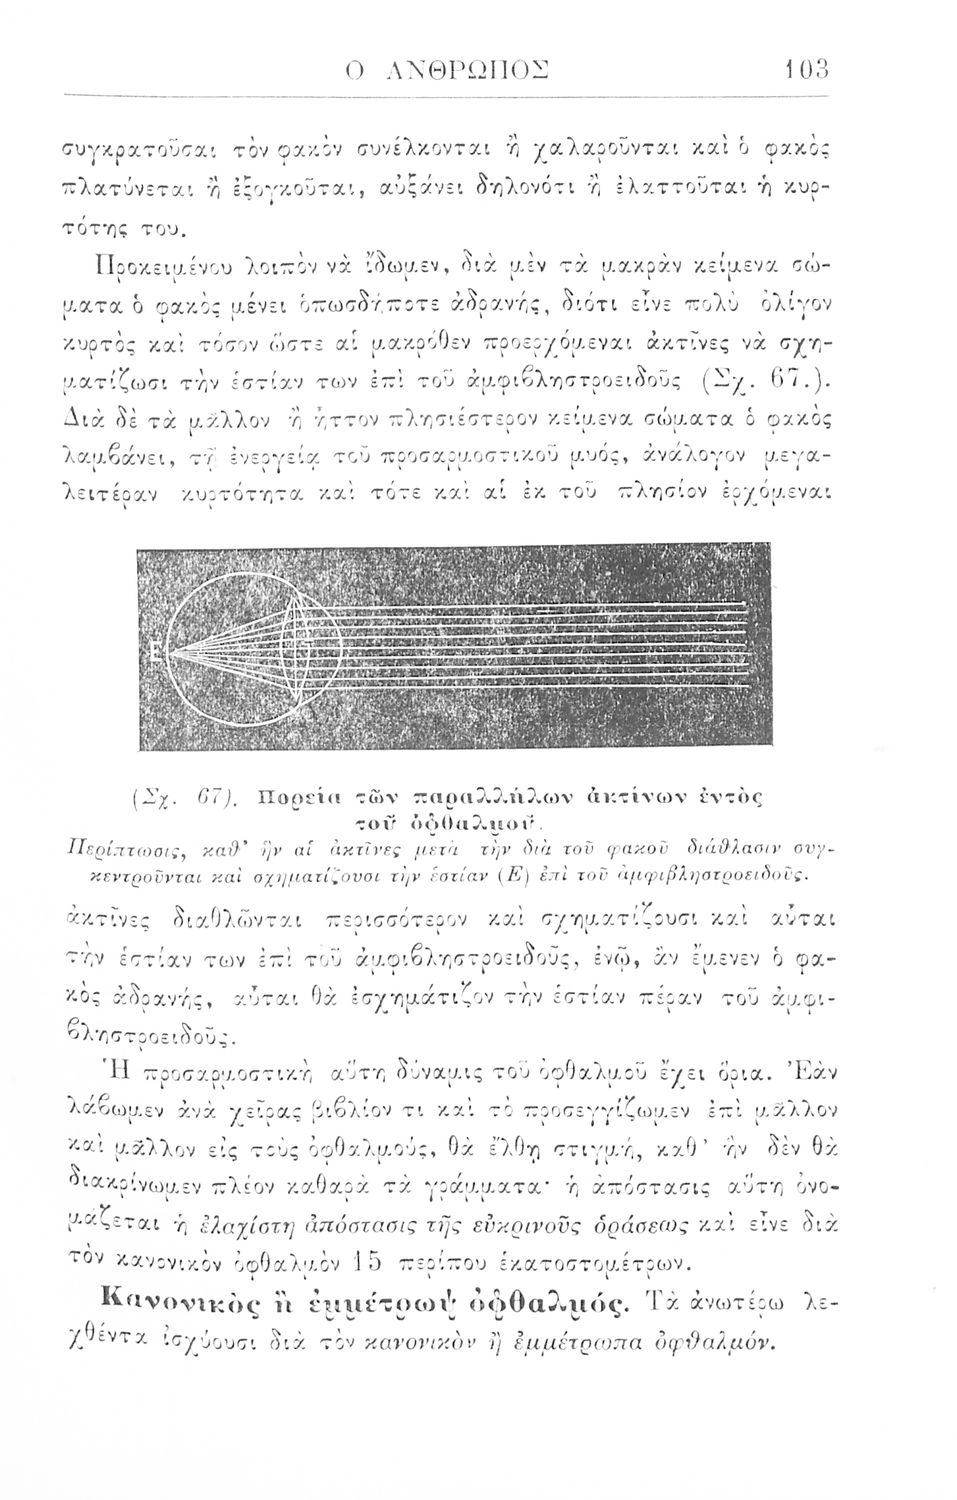 Ο ΑΝΘΡΩΠΟΣ 103
συγκρατοῦσαι τὸν φακὸν συνέλκονται ἢ χαλαροῦνται καὶ ὁ φακὸς
πλατύνεται ἢ ἐξογκοῦται, αὐξάνει δηλονότι ἢ ἐλαττοῦται ἡ κυρ-
τότης του.
Προκειμένου λοιπὸν νὰ ἴδωμεν, διὰ μὲν τὰ μακρὰν κείμενα σώ-
ματα ὁ φακὸς μένει ὁπωσδήποτε ἀδρανής, διότι εἶνε πολὺ ὀλίγον
κυρτὸς καὶ τόσον ὥστε αἱ μακρόθεν προερχόμεναι ἀκτῖνες νὰ σχη-
ματίζωσι τὴν ἑστίαν των ἐπὶ τοῦ ἀμφιβληστροειδοῦς (Σχ. 67.).
Διὰ δὲ τὰ μᾶλλον ἢ ἧττον πλησιέστερον κείμενα σώματα ὁ φακὸς
λαμβάνει, τῇ ἐνεργείᾳ τοῦ προσαρμοστικοῦ μυός, ἀνάλογον μεγα-
λειτέραν κυρτότητα καὶ τότε καὶ αἱ ἐκ τοῦ πλησίον ἐρχόμεναι
E
(Σχ. 67). Πορεία τῶν παραλλήλων ἀκτίνων ἐντὸς
τοῦ ὀφθαλμοῦ.
Περίπτωσις, καθ' ἣν αἱ ἀκτῖνες μετὰ τὴν διὰ τοῦ φακοῦ διάθλασιν συγ-
κεντροῦνται καὶ σχηματίζουσι τὴν ἑστίαν (Ε) ἐπὶ τοῦ ἀμφιβληστροειδοῦς.
ἀκτῖνες διαθλῶνται περισσότερον καὶ σχηματίζουσι καὶ αὗται
τὴν ἑστίαν των ἐπὶ τοῦ ἀμφιβληστροειδοῦς, ἐνῷ, ἂν ἔμενεν ὁ φα-
κὸς ἀδρανής, αὗται θὰ ἐσχημάτιζον τὴν ἑστίαν πέραν τοῦ ἀμφι-
βληστροειδοῦς.
Ἡ προσαρμοστικὴ αὕτη δύναμις τοῦ ὀφθαλμοῦ ἔχει ὅρια. Ἐὰν
λάβωμεν ἀνὰ χεῖρας βιβλίον τι καὶ τὸ προσεγγίζωμεν ἐπὶ μᾶλλον
καὶ μᾶλλον εἰς τοὺς ὀφθαλμούς, θὰ ἔλθῃ στιγμή, καθ' ἣν δὲν θὰ
διακρίνωμεν πλέον καθαρὰ τὰ γράμματα· ἡ ἀπόστασις αὕτη ὀνο-
μάζεται ἡ ἐλαχίστη ἀπόστασις τῆς εὐκρινοῦς ὁράσεως καὶ εἶνε διὰ
τὸν κανονικὸν ὀφθαλμὸν 15 περίπου ἑκατοστομέτρων.
Κανονικὸς ἢ ἐμμέτρωψ ὀφθαλμός. Τὰ ἀνωτέρω λε-
χθέντα ἰσχύουσι διὰ τὸν κανονικὸν ἢ ἐμμέτρωπα ὀφθαλμόν.